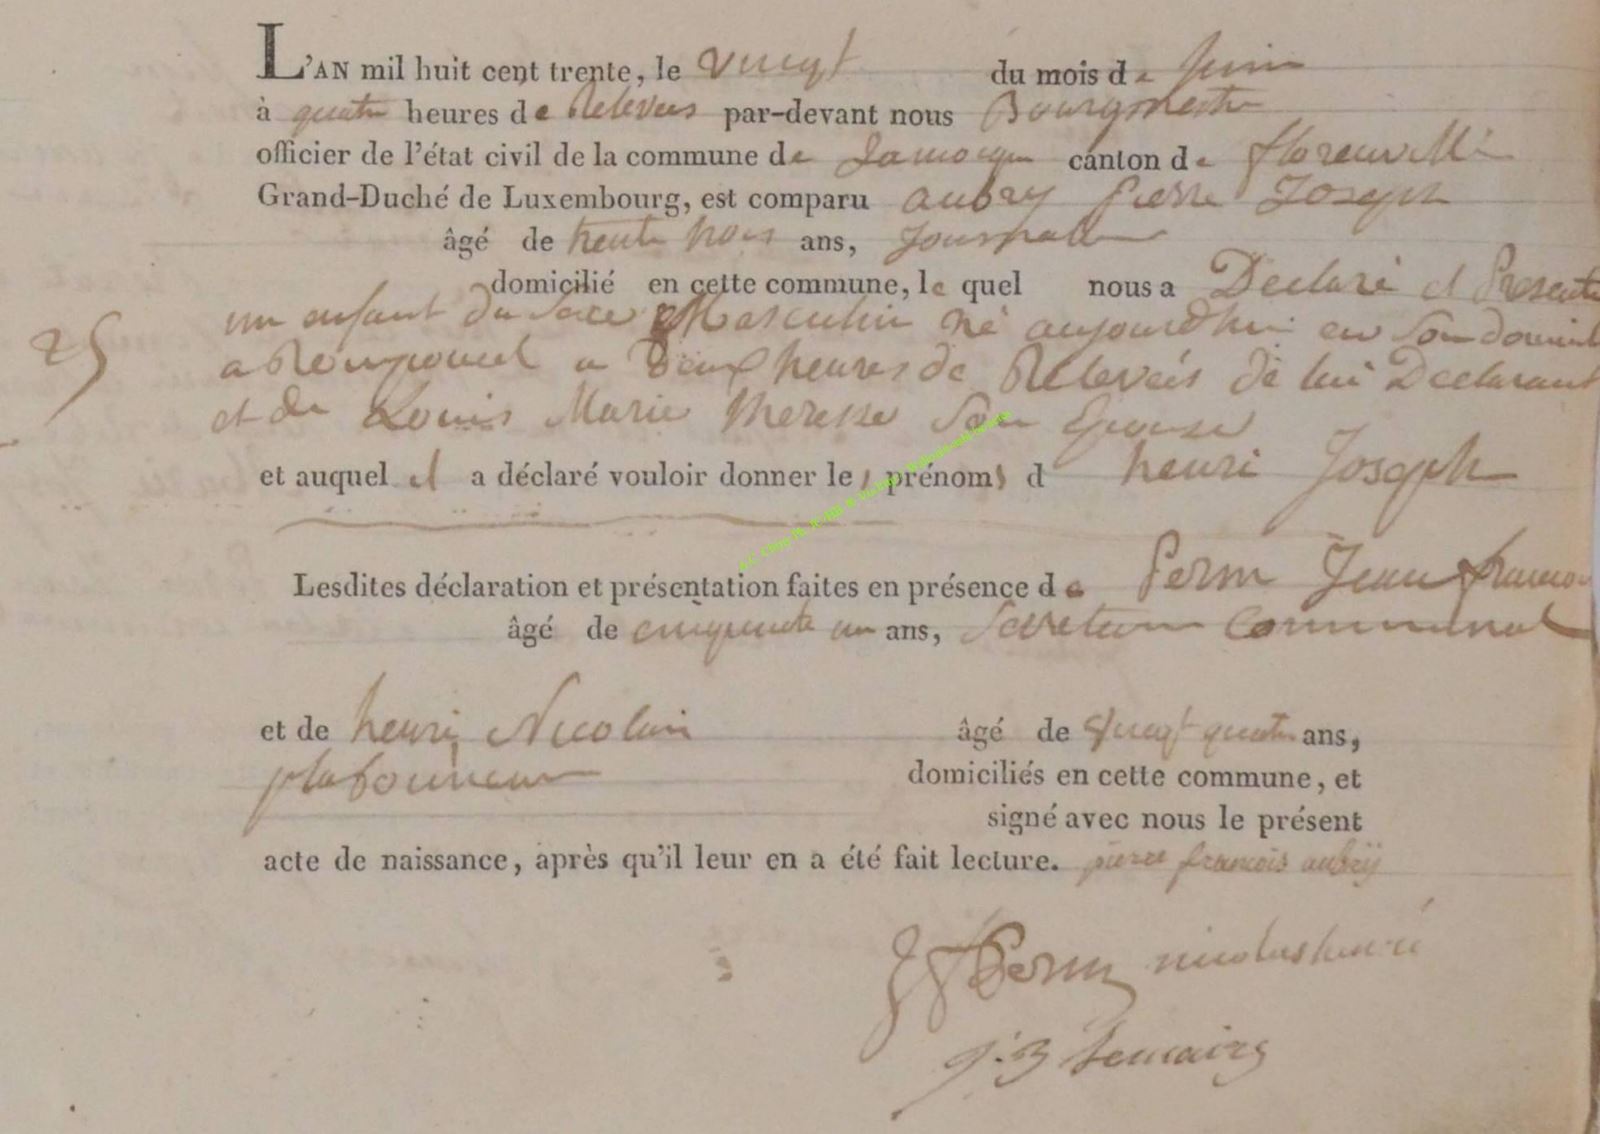 L'AN mil huit cent trente, le vingt du mois de Juin
à quatre heures de Relevées par-devant nous Bourgmestre
officier de l'état civil de la commune de Jamoigne canton de florenville
Grand-Duché de Luxembourg, est comparu aubry pierre Joseph
âgé de trente trois ans, Journalier
domicilié en cette commune, le quel nous a Declaré et Presenté
un enfant du sexe Masculin né aujourdhui en son domicile
25
a Romponcel a deux heures de Relevées de lui Declarant
et de Louis Marie theresse Son Epouse
et auquel il a déclaré vouloir donner les prénoms d henri Joseph
Lesdites déclaration et présentation faites en présence de Pernn Jean francois
âgé de cinquante un ans, Secretaire Communal
et de henri Nicolas âgé de vingt quatre ans,
plafonneur domiciliés en cette commune, et
signé avec nous le présent
acte de naissance, après qu'il leur en a été fait lecture. pierre francois aubrÿ
J F Pernn nicolas henri
J. B Lemaire